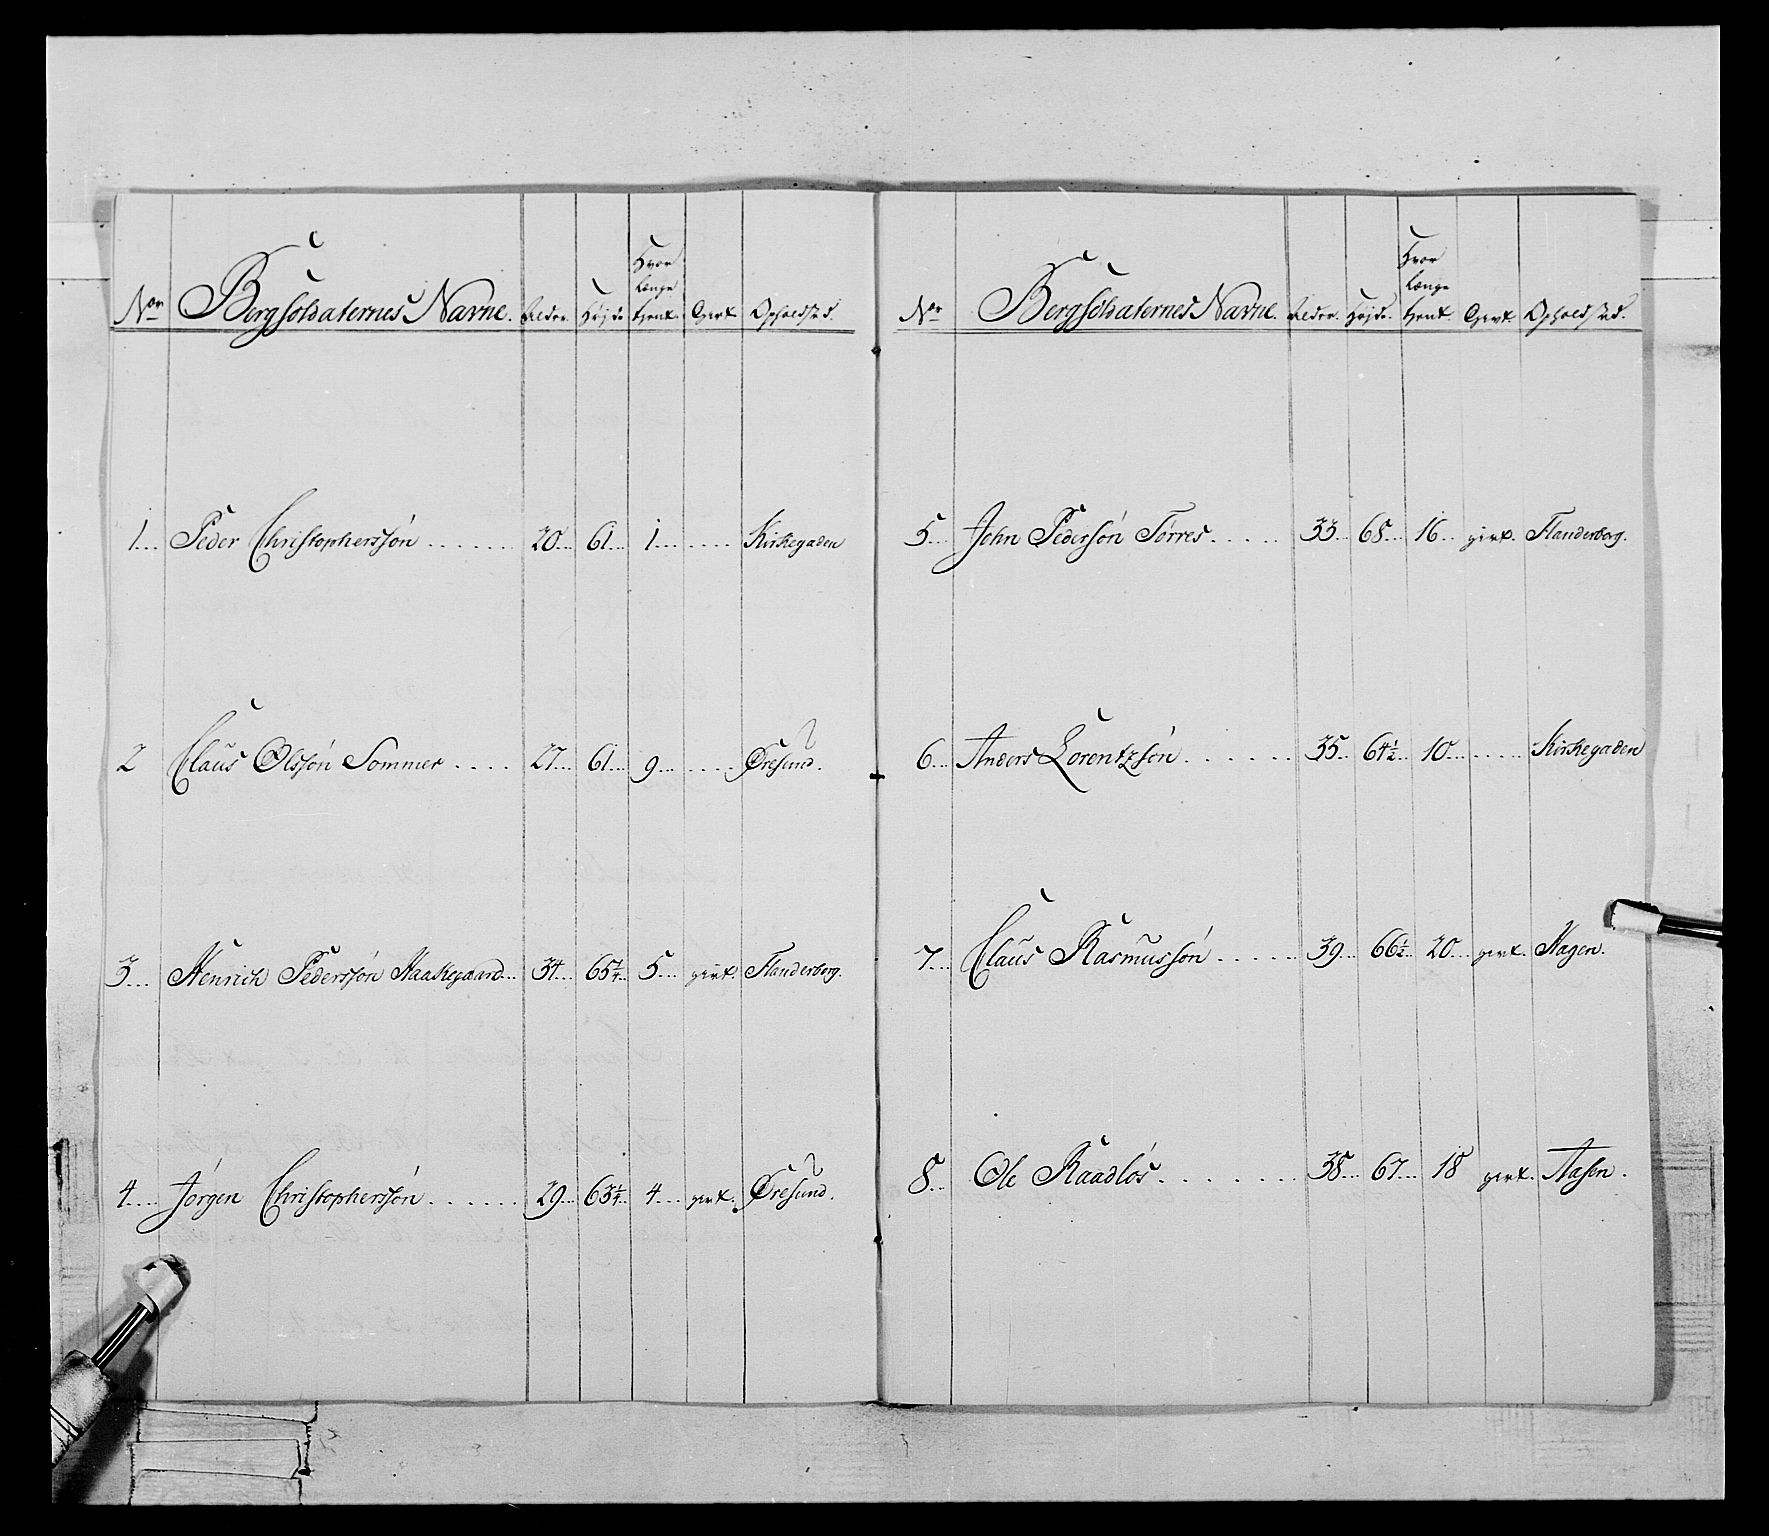 Nor Bergsoldaternes Navne. Alder. Højde Hvor længe tjent. Givt Opholdsted.
1... Peder Christophersøn ....... 20... 61... 1... .... Kirkegaden
2 Claus Olssøn Sommer .... 27... 61... 9... .... Øresund.
3... Henrich Pederssøn Haakegaard... 34... 65¼... 5... givt. Flanderborg.
4... Jørgen Christopherssøn ...... 29... 63¼... 4... givt. Øresund.
Nor Bergsoldaternes Navne. Alder. Højde. Hvor længe tjent. Givt. Opholdsted.
5... John Pedersøn Tørres..... 33... 68... 16... givt. Flanderborg.
6... Anders Lorentzsøn....... 35... 64½... 10... .... Kirkegaden
7... Claus Rasmussøn ..... 39... 66½... 20... givt. Hagen.
8... Ole Raadløs....... 38... 67... 18 givt. Aasen.